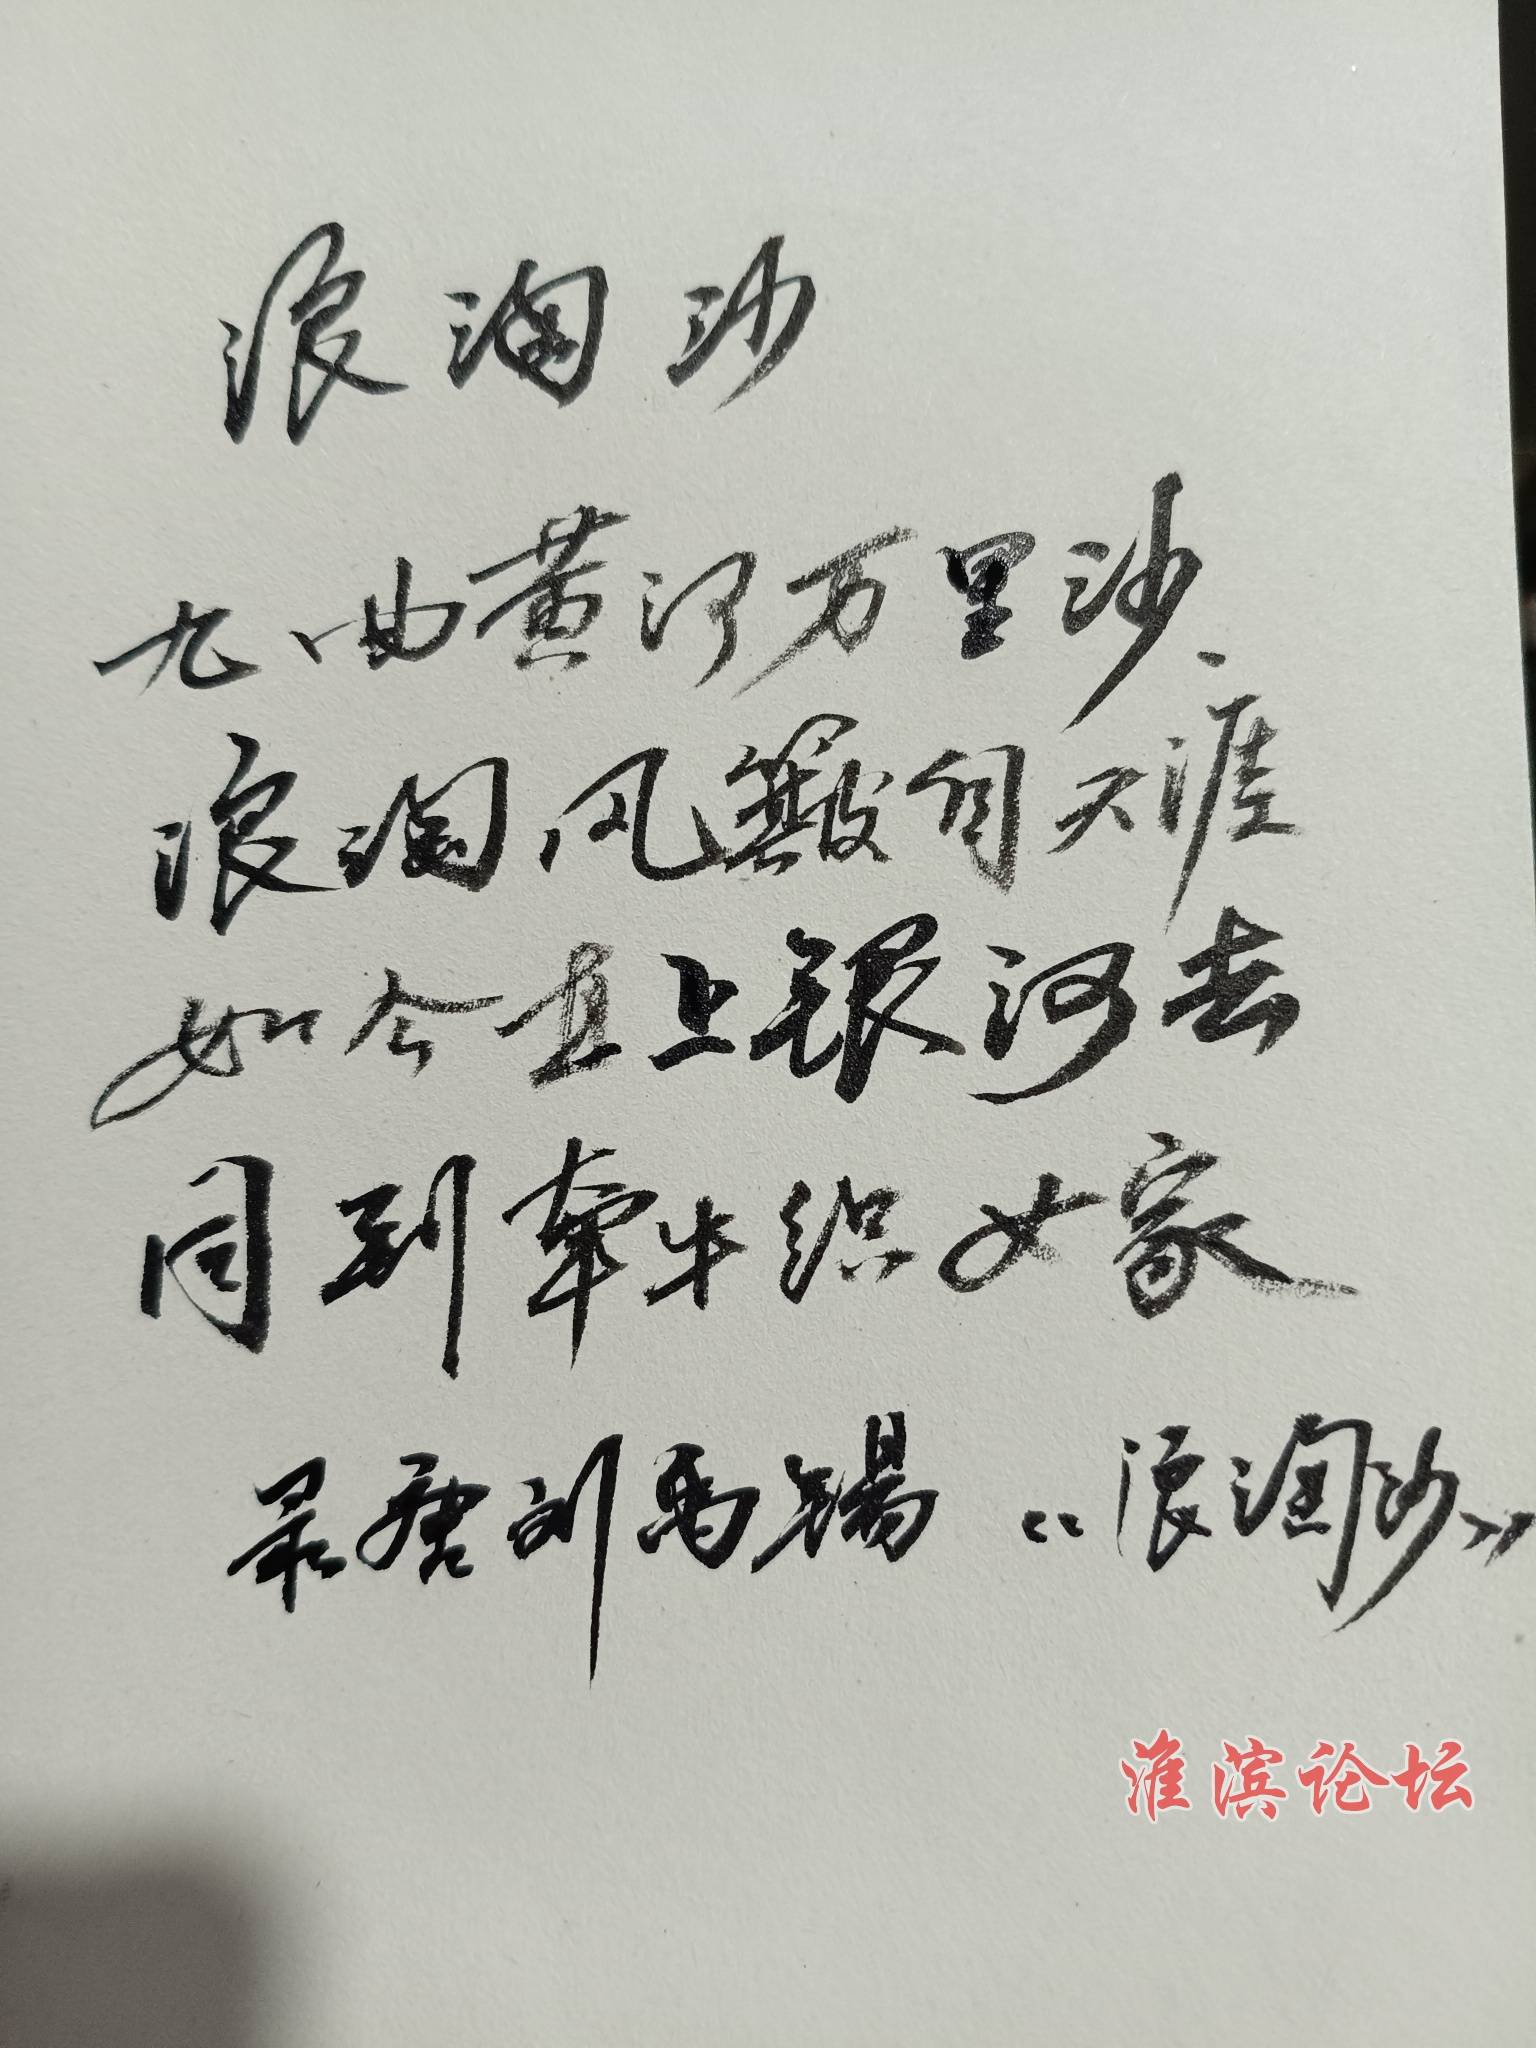 浪淘沙
九曲黄河万里沙
浪淘风簸自天涯
如今直上银河去
同到牵牛织女家
录唐刘禹锡《浪淘沙》
淮滨论坛